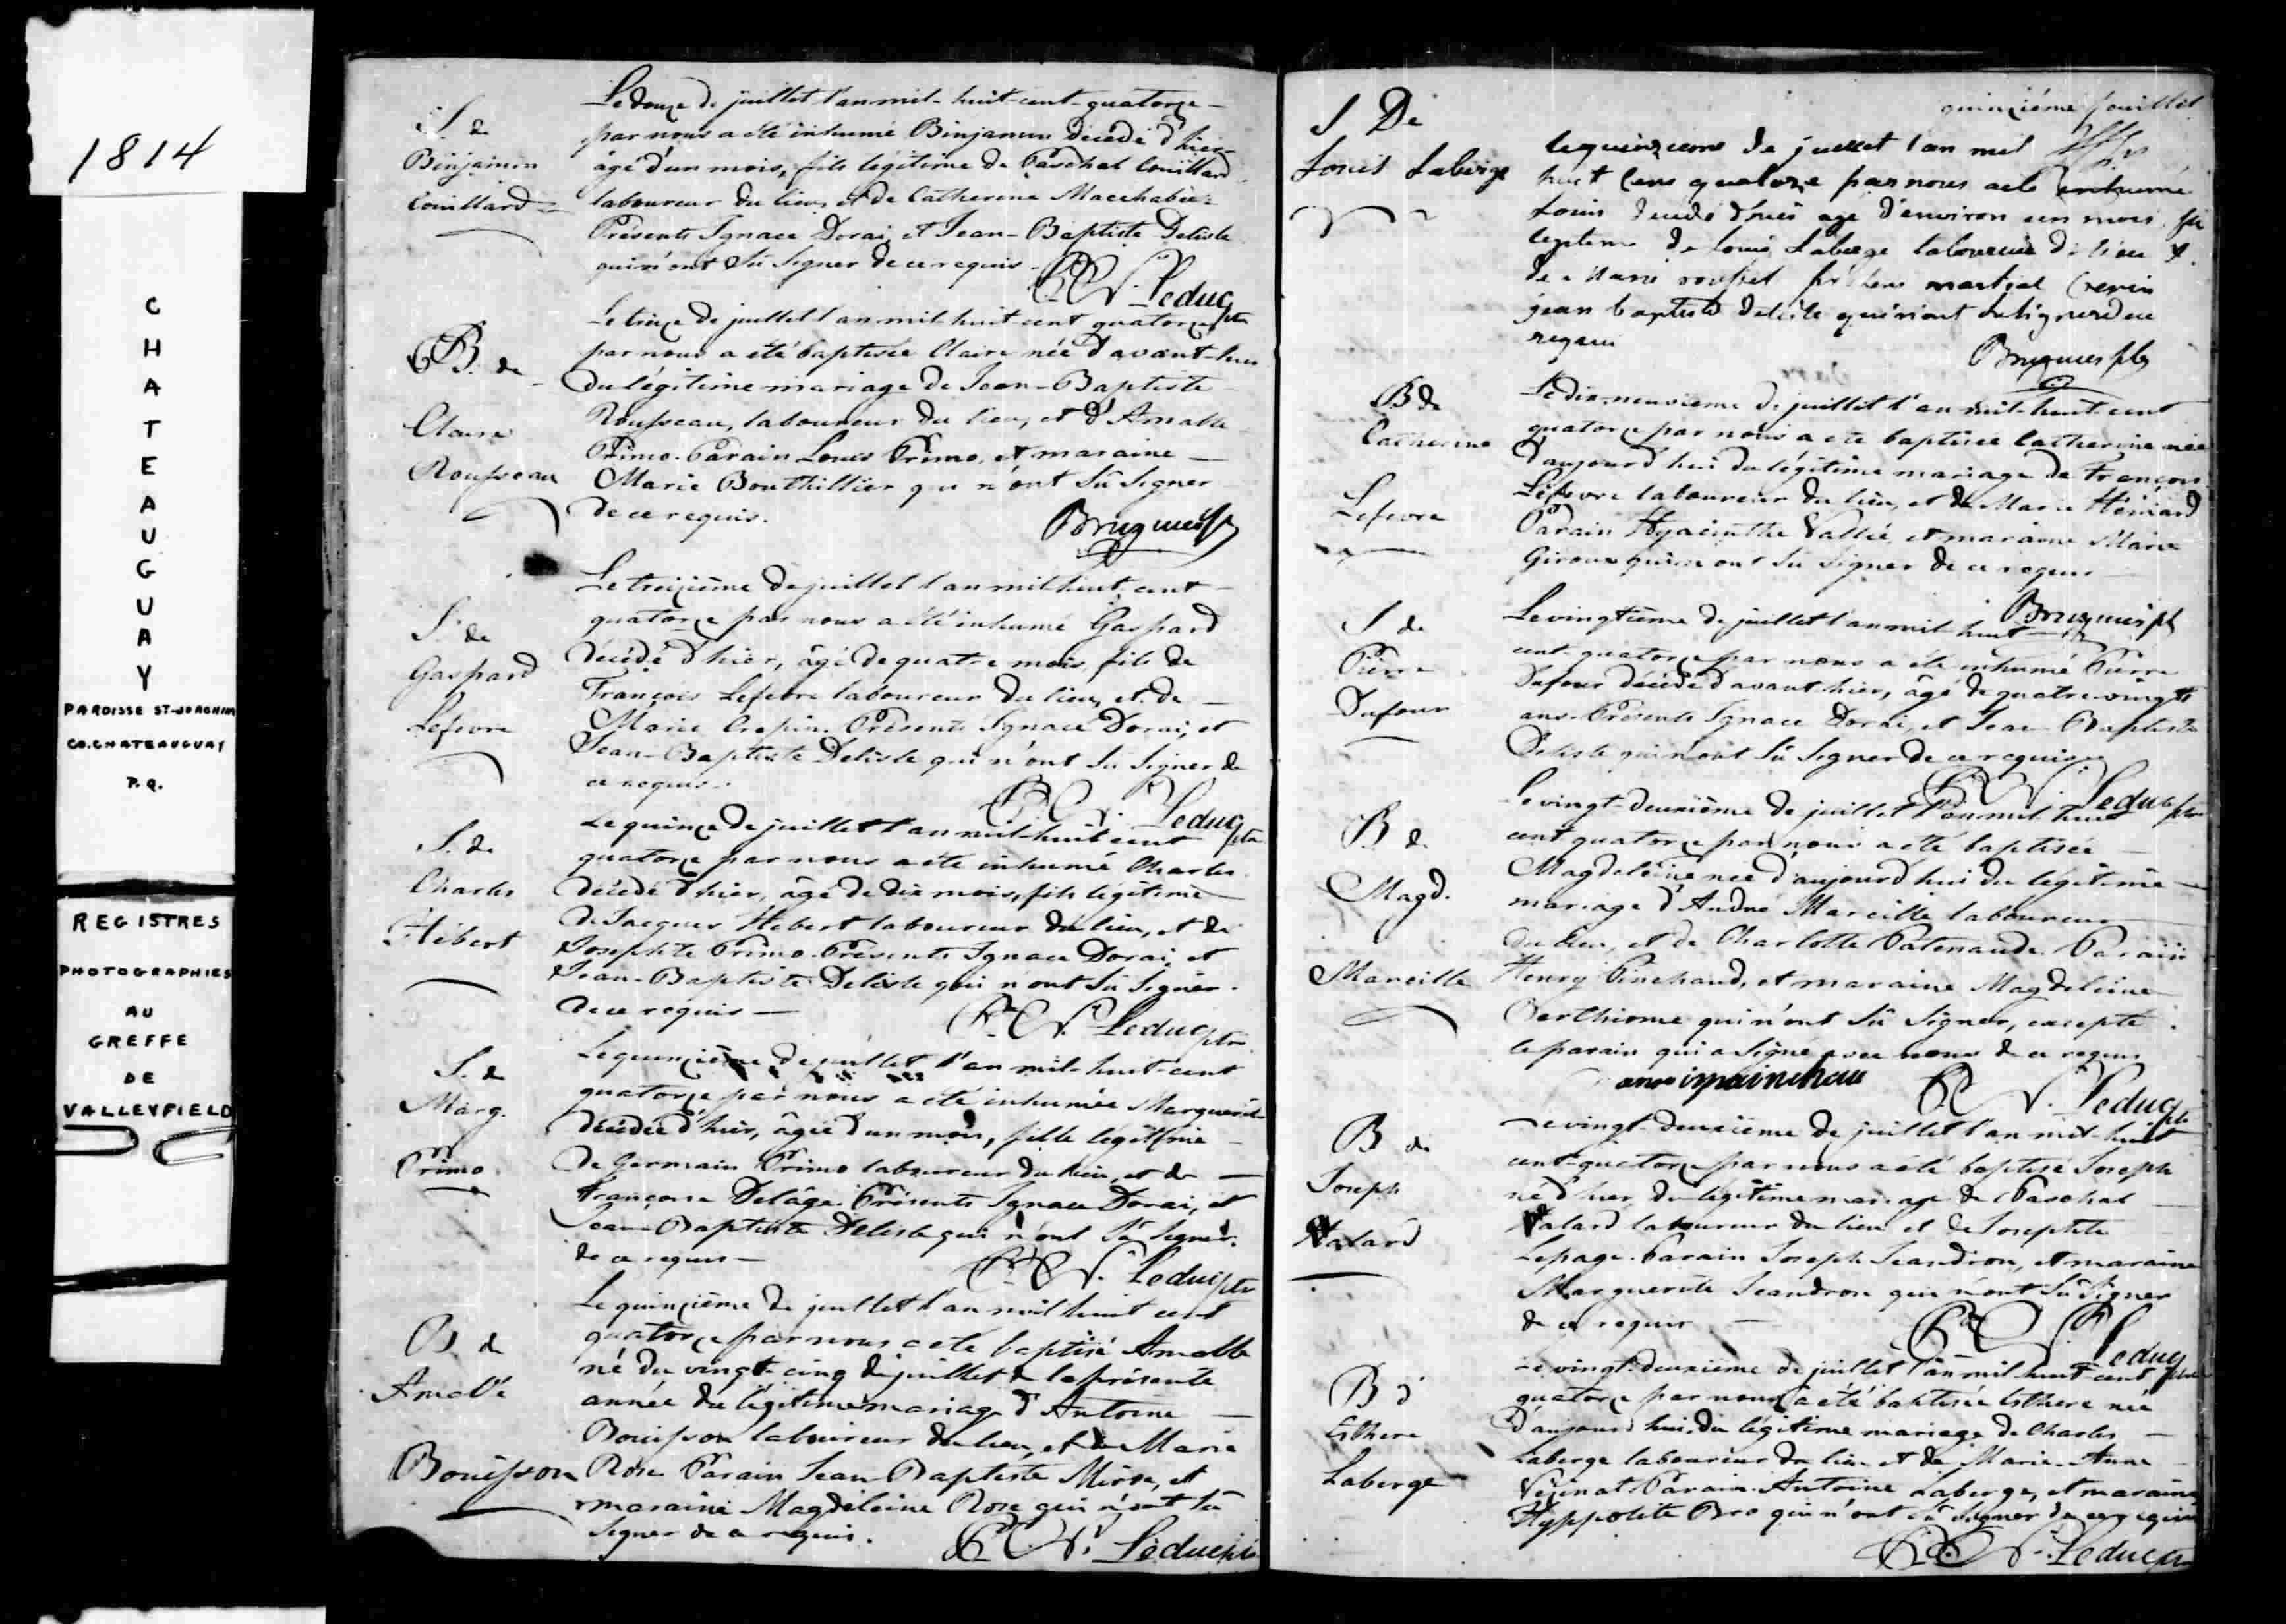 1814
CHATEAUGUAY
PAROISSE ST-JOACHIM
CO. CHATEAUGUAY
P.Q.
REGISTRES
PHOTOGRAPHIES
AU
GREFFE
DE
VALLEYFIELD
S. de
Binjamin
Couillard
Le douze de juillet l'an mil-huit-cent-quatorze
par nous a été inhumé Binjamin décédé d'hier
âgé d'un mois, fils légitime de Paschal Couillard
laboureur du lieu, et de Catherine Macchabée
Présents Ignace Dorai, et Jean-Baptiste Delisle
qui n'ont sû signer de ce requis
Leduc ptre
B. de
Claire
Rousseau
Le treize de juillet l'an mil-huit-cent quatorze
par nous a été baptisée Claire née d'avant-hier
du légitime mariage de Jean-Baptiste
Rousseau, laboureur du lieu, et d'Amable
Primo. Parain Louis Primo, et maraine
Marie Bouthillier qui n'ont sû signer
de ce requis.
Bruguier
S. de
Gaspard
Lefevre
Le treizième de juillet l'an mil huit cent
quatorze par nous a été inhumé Gaspard
décédé d'hier, âgé de quatre mois, fils de
François Lefevre laboureur du lieu, et de
Marie Crepin. Présents Ignace Dorai, et
Jean-Baptiste Delisle qui n'ont sû signer de
ce requis.
Leduc ptre
S. de
Charles
Hébert
Le quinze de juillet l'an mil-huit cent
quatorze par nous a été inhumé Charles
décédé d'hier, âgé de dix mois, fils légitime
de Jacques Hébert laboureur du lieu, et de
Josephte Primo. Présents Ignace Dorai, et
Jean-Baptiste Delisle qui n'ont sû signer
de ce requis
Leduc ptre
S. de
Marg.
Primo
Le quinzième de juillet l'an mil-huit-cent
quatorze par nous a été inhumée Marguerite
décédée d'hier, âgée d'un mois, fille légitime
de Germain Primo laboureur du lieu, et de
Françoise Delâge. Présents Ignace Dorai, et
Jean-Baptiste Delisle qui n'ont sû signer
de ce requis
Leduc ptre
B. de
Amable
Bouisson
Le quinzième de juillet l'an mil huit cent
quatorze par nous a été baptisé Amable
né du vingt-cinq de juillet de la présente
année du légitime mariage d'Antoine
Bouisson laboureur du lieu, et de Marie
Rose Parain Jean-Baptiste et
maraine Magdeleine Rose qui n'ont sû
signer de ce requis.
Leduc ptre
quinzième juillet
S De
Louis Laberge
le quinzieme de juillet l'an mil
huit cens quatorze par nous a ete enhumé
Louis decedé d'hier age d'environ un mois
legitime de Louis Laberge laboureur du lieu &
de Marie roussel presens martial
jean baptiste delisle
requis
Bruguier ptr
B de
Catherine
Lefevre
Le dix-neuvieme de juillet l'an mil-huit-cent
quatorze par nous a été baptisée Catherine née
d'aujourd'hui du légitime mariage de François
Lefevre laboureur du lieu, et de Marie Hénard
Parain Hyacinthe Vallée, et maraine Marie
Giroux qui n'ont sû signer de ce requis
Bruguier pt
S de
Pierre
Dufour
Le vingtième de juillet l'an mil huit
cent-quatorze par nous a été inhumé Pierre
Dufour décédé d'avant-hier, âgé de quatre-vingts
ans. Présents Ignace Dorai, et Jean-Baptiste
Delisle qui n'ont sû signer de ce requis
Leduc ptre
B de
Magd.
Mareille
Le vingt-deuxième de juillet l'an mil huit
cent quatorze par nous a été baptisée
Magdeleine née d'aujourd'hui du légitime
mariage d'André Mareille laboureur
du lieu, et de Charlotte Patenaude. Parain
Henry Pinchaud, et maraine Magdeleine
Berthiome qui n'ont sû signer, excepté
le parain qui a signé avec nous de ce requis
Leduc ptr
B de
Joseph
Valard
Le vingt-deuxième de juillet l'an mil-huit
cent-quatorze par nous a été baptisé Joseph
né d'hier du légitime mariage de Paschal
Valard laboureur du lieu et de Josephte
Lepage. Parain Joseph Jeandron, et maraine
Marguerite Jeandron qui n'ont sû signer
de ce requis
Leduc ptre
B d'
Esthere
Laberge
Le vingt-deuxième de juillet l'an mil huit-cent
quatorze par nous a été baptisée Esthere née
d'aujourd'hui, du légitime mariage de Charles
Laberge laboureur du lieu et de Marie-Anne
Vésinat. Parain Antoine Laberge, et maraine
Hyppolite Bro qui n'ont sû signer de ce requis
Leduc ptr